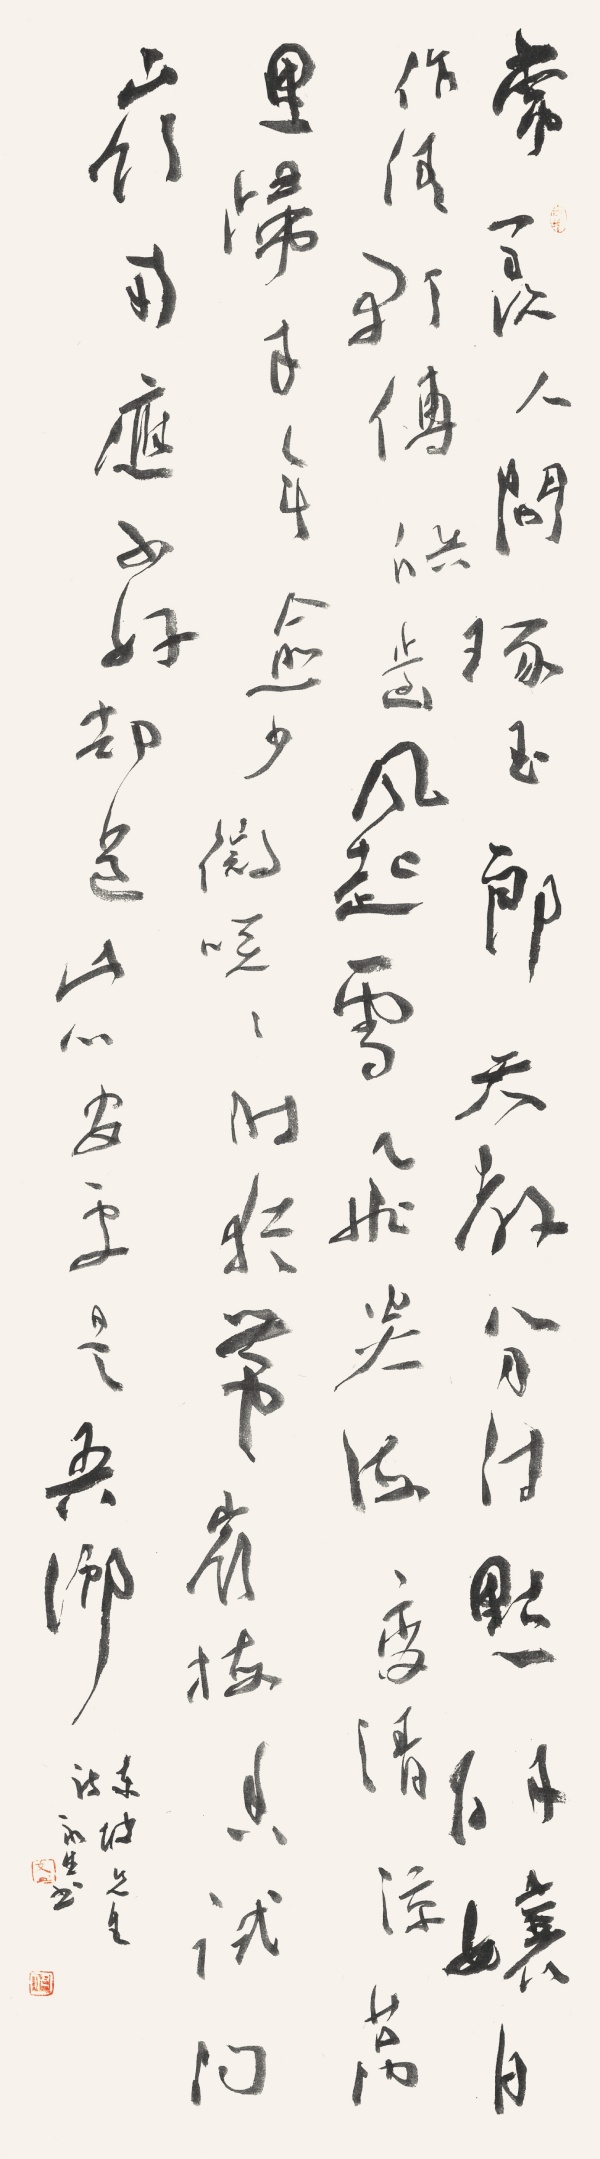 常羨人間琢玉郎天教分付點酥孃自
作清歌傳皓齒風起雪飛炎海變清涼萬
里歸來年愈少微咲々時猶帶嶺梅香試問
嶺南應不好却道此心安處是吾鄉
東坡先生